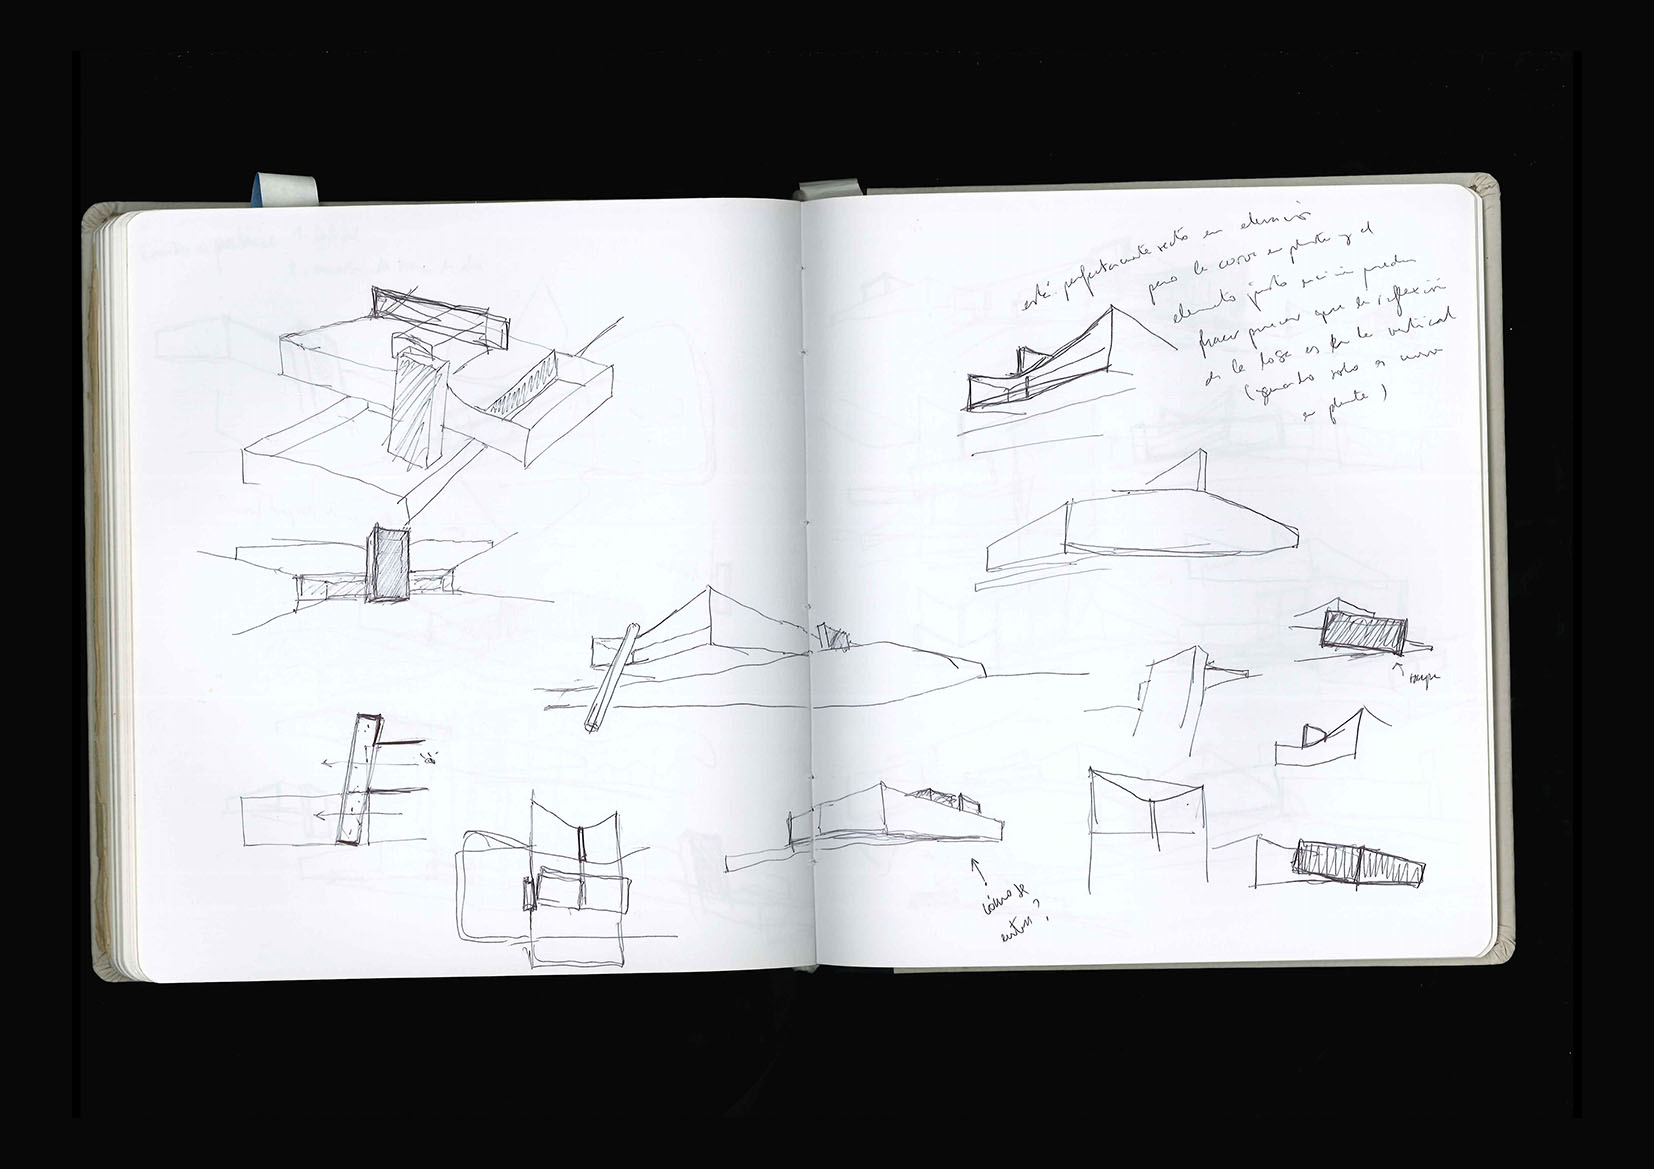 está perfectamente recto en elevación
pero la curva en planta y el
elemento justo encima pueden
hacer parecer que la inflexión
de la losa es en la vertical
(cuando solo es curva
en planta)
cómo se
entra?